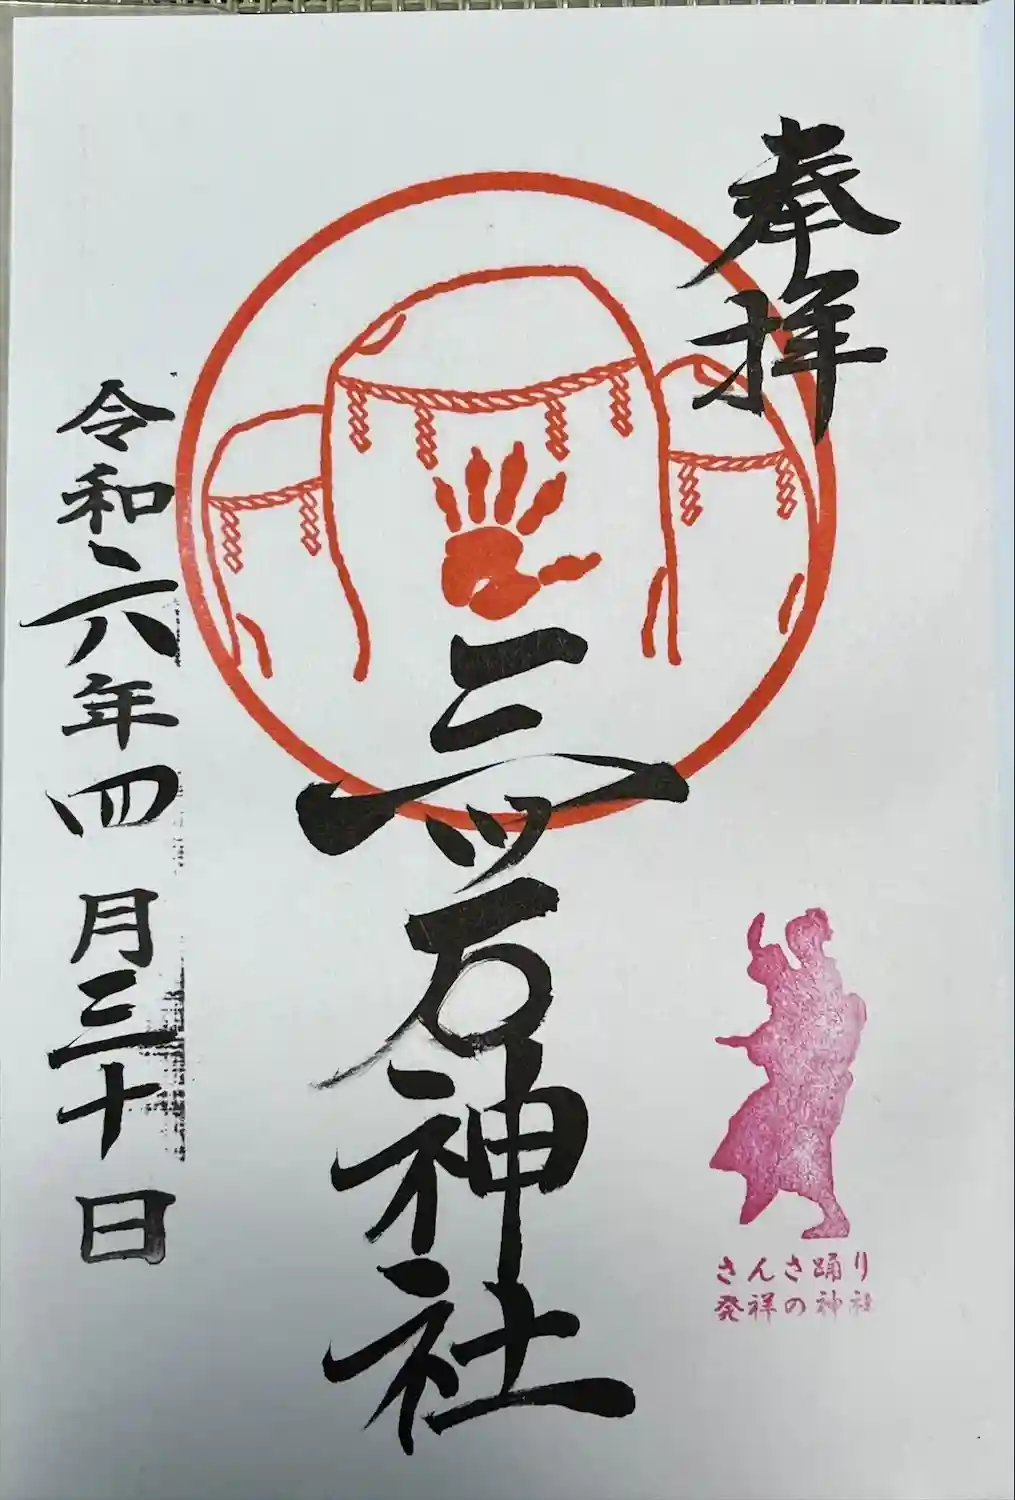 奉拝
三ツ石神社
令和六年四月三十日
さんさ踊り
発祥の神社